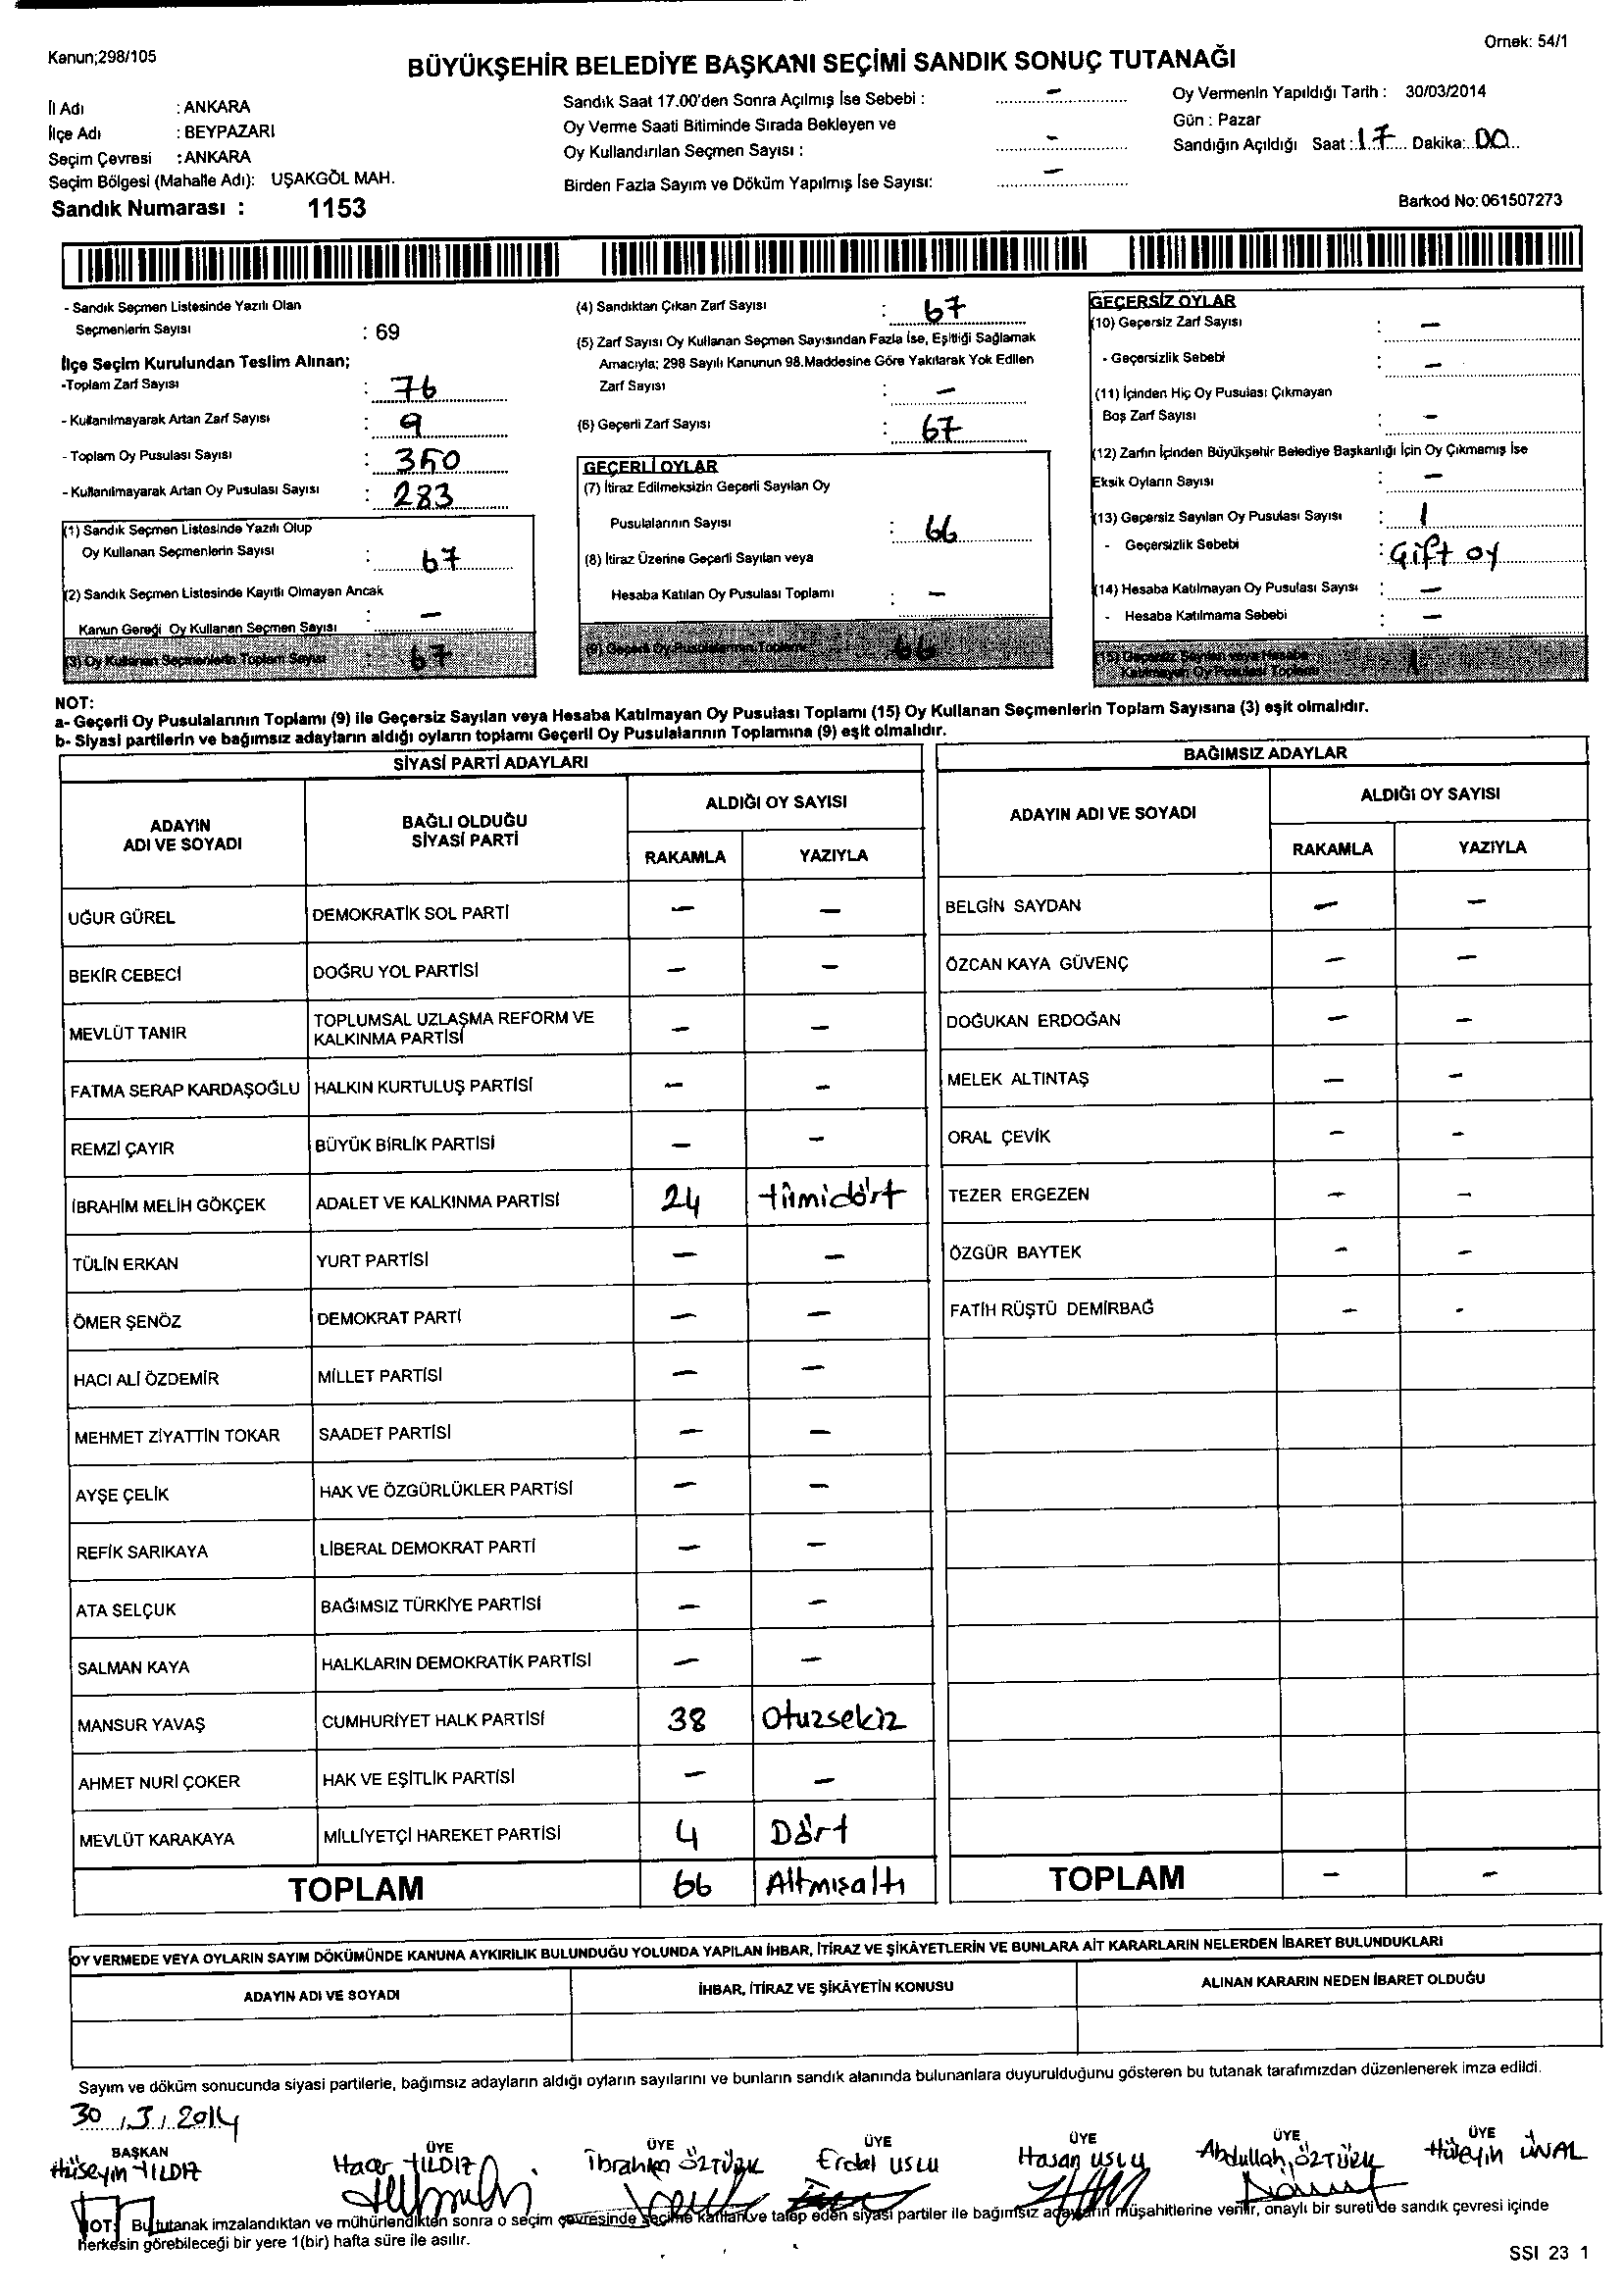 Kanun;298/105
Örnek: 54/1
BÜYÜKŞEHİR BELEDİYE BAŞKANI SEÇİMİ SANDIK SONUÇ TUTANAĞI
İl Adı : ANKARA
İlçe Adı : BEYPAZARI
Seçim Çevresi : ANKARA
Seçim Bölgesi (Mahalle Adı): UŞAKGÖL MAH.
Sandık Numarası : 1153
Sandık Saat 17.00'den Sonra Açılmış İse Sebebi : -
Oy Verme Saati Bitiminde Sırada Bekleyen ve
Oy Kullandırılan Seçmen Sayısı : -
Birden Fazla Sayım ve Döküm Yapılmış İse Sayısı: -
Oy Vermenin Yapıldığı Tarih : 30/03/2014
Gün : Pazar
Sandığın Açıldığı Saat : 17 Dakika: 00
Barkod No: 061507273
- Sandık Seçmen Listesinde Yazılı Olan
Seçmenlerin Sayısı : 69
İlçe Seçim Kurulundan Teslim Alınan;
-Toplam Zarf Sayısı : 76
- Kullanılmayarak Artan Zarf Sayısı : 9
- Toplam Oy Pusulası Sayısı : 350
- Kullanılmayarak Artan Oy Pusulası Sayısı : 283
(1) Sandık Seçmen Listesinde Yazılı Olup
Oy Kullanan Seçmenlerin Sayısı : 67
(2) Sandık Seçmen Listesinde Kayıtlı Olmayan Ancak
Kanun Gereği Oy Kullanan Seçmen Sayısı : -
(3) Oy Kullanan Seçmenlerin Toplam Sayısı : 67
(4) Sandıktan Çıkan Zarf Sayısı : 67
(5) Zarf Sayısı Oy Kullanan Seçmen Sayısından Fazla İse, Eşitliği Sağlamak
Amacıyla; 298 Sayılı Kanunun 98.Maddesine Göre Yakılarak Yok Edilen
Zarf Sayısı : -
(6) Geçerli Zarf Sayısı : 67
GEÇERLİ OYLAR
(7) İtiraz Edilmeksizin Geçerli Sayılan Oy
Pusulalarının Sayısı : 66
(8) İtiraz Üzerine Geçerli Sayılan veya
Hesaba Katılan Oy Pusulası Toplamı : -
(9) Geçerli Oy Pusulalarının Toplamı 66
GEÇERSİZ OYLAR
(10) Geçersiz Zarf Sayısı : -
- Geçersizlik Sebebi : -
(11) İçinden Hiç Oy Pusulası Çıkmayan
Boş Zarf Sayısı : -
(12) Zarfın İçinden Büyükşehir Belediye Başkanlığı İçin Oy Çıkmamış İse
Eksik Oyların Sayısı : -
(13) Geçersiz Sayılan Oy Pusulası Sayısı : 1
- Geçersizlik Sebebi : Çift oy
(14) Hesaba Katılmayan Oy Pusulası Sayısı : -
- Hesaba Katılmama Sebebi : -
(15) Geçersiz Sayılan veya Hesaba
Katılmayan Oy Pusulası Toplamı 1
NOT:
a- Geçerli Oy Pusulalarının Toplamı (9) ile Geçersiz Sayılan veya Hesaba Katılmayan Oy Pusulası Toplamı (15) Oy Kullanan Seçmenlerin Toplam Sayısına (3) eşit olmalıdır.
b- Siyasi partilerin ve bağımsız adayların aldığı oyların toplamı Geçerli Oy Pusulalarının Toplamına (9) eşit olmalıdır.
SİYASİ PARTİ ADAYLARI
ADAYIN ADI VE SOYADI BAĞLI OLDUĞU SİYASİ PARTİ ALDIĞI OY SAYISI
RAKAMLA YAZIYLA
UĞUR GÜREL DEMOKRATİK SOL PARTİ - -
BEKİR CEBECİ DOĞRU YOL PARTİSİ - -
MEVLÜT TANIR TOPLUMSAL UZLAŞMA REFORM VE KALKINMA PARTİSİ - -
FATMA SERAP KARDAŞOĞLU HALKIN KURTULUŞ PARTİSİ - -
REMZİ ÇAYIR BÜYÜK BİRLİK PARTİSİ - -
İBRAHİM MELİH GÖKÇEK ADALET VE KALKINMA PARTİSİ 24 Yirmidört
TÜLİN ERKAN YURT PARTİSİ - -
ÖMER ŞENÖZ DEMOKRAT PARTİ - -
HACI ALİ ÖZDEMİR MİLLET PARTİSİ - -
MEHMET ZİYATTİN TOKAR SAADET PARTİSİ - -
AYŞE ÇELİK HAK VE ÖZGÜRLÜKLER PARTİSİ - -
REFİK SARIKAYA LİBERAL DEMOKRAT PARTİ - -
ATA SELÇUK BAĞIMSIZ TÜRKİYE PARTİSİ - -
SALMAN KAYA HALKLARIN DEMOKRATİK PARTİSİ - -
MANSUR YAVAŞ CUMHURİYET HALK PARTİSİ 38 Otuzsekiz
AHMET NURİ ÇOKER HAK VE EŞİTLİK PARTİSİ - -
MEVLÜT KARAKAYA MİLLİYETÇİ HAREKET PARTİSİ 4 Dört
TOPLAM 66 Altmışaltı
BAĞIMSIZ ADAYLAR
ADAYIN ADI VE SOYADI ALDIĞI OY SAYISI
RAKAMLA YAZIYLA
BELGİN SAYDAN - -
ÖZCAN KAYA GÜVENÇ - -
DOĞUKAN ERDOĞAN - -
MELEK ALTINTAŞ - -
ORAL ÇEVİK - -
TEZER ERGEZEN - -
ÖZGÜR BAYTEK - -
FATİH RÜŞTÜ DEMİRBAĞ - -
TOPLAM - -
OY VERMEDE VEYA OYLARIN SAYIM DÖKÜMÜNDE KANUNA AYKIRILIK BULUNDUĞU YOLUNDA YAPILAN İHBAR, İTİRAZ VE ŞİKÂYETLERİN VE BUNLARA AİT KARARLARIN NELERDEN İBARET BULUNDUKLARI
ADAYIN ADI VE SOYADI İHBAR, İTİRAZ VE ŞİKÂYETİN KONUSU ALINAN KARARIN NEDEN İBARET OLDUĞU
Sayım ve döküm sonucunda siyasi partilerle, bağımsız adayların aldığı oyların sayılarını ve bunların sandık alanında bulunanlara duyurulduğunu gösteren bu tutanak tarafımızdan düzenlenerek imza edildi.
30 / 3 / 2014
BAŞKAN ÜYE ÜYE ÜYE ÜYE ÜYE ÜYE
Hüseyin YILDIZ Hacer YILDIZ İbrahim ÖZTÜRK Erdal USLU Hasan USLU Abdullah ÖZTÜRK Hüseyin ÜNAL
NOT: Bu tutanak imzalandıktan ve mühürlendikten sonra o seçim çevresinde seçime katılan ve talep eden siyasi partiler ile bağımsız adayların müşahitlerine verilir, onaylı bir sureti de sandık çevresi içinde
herkesin görebileceği bir yere 1(bir) hafta süre ile asılır.
SSI 23 1